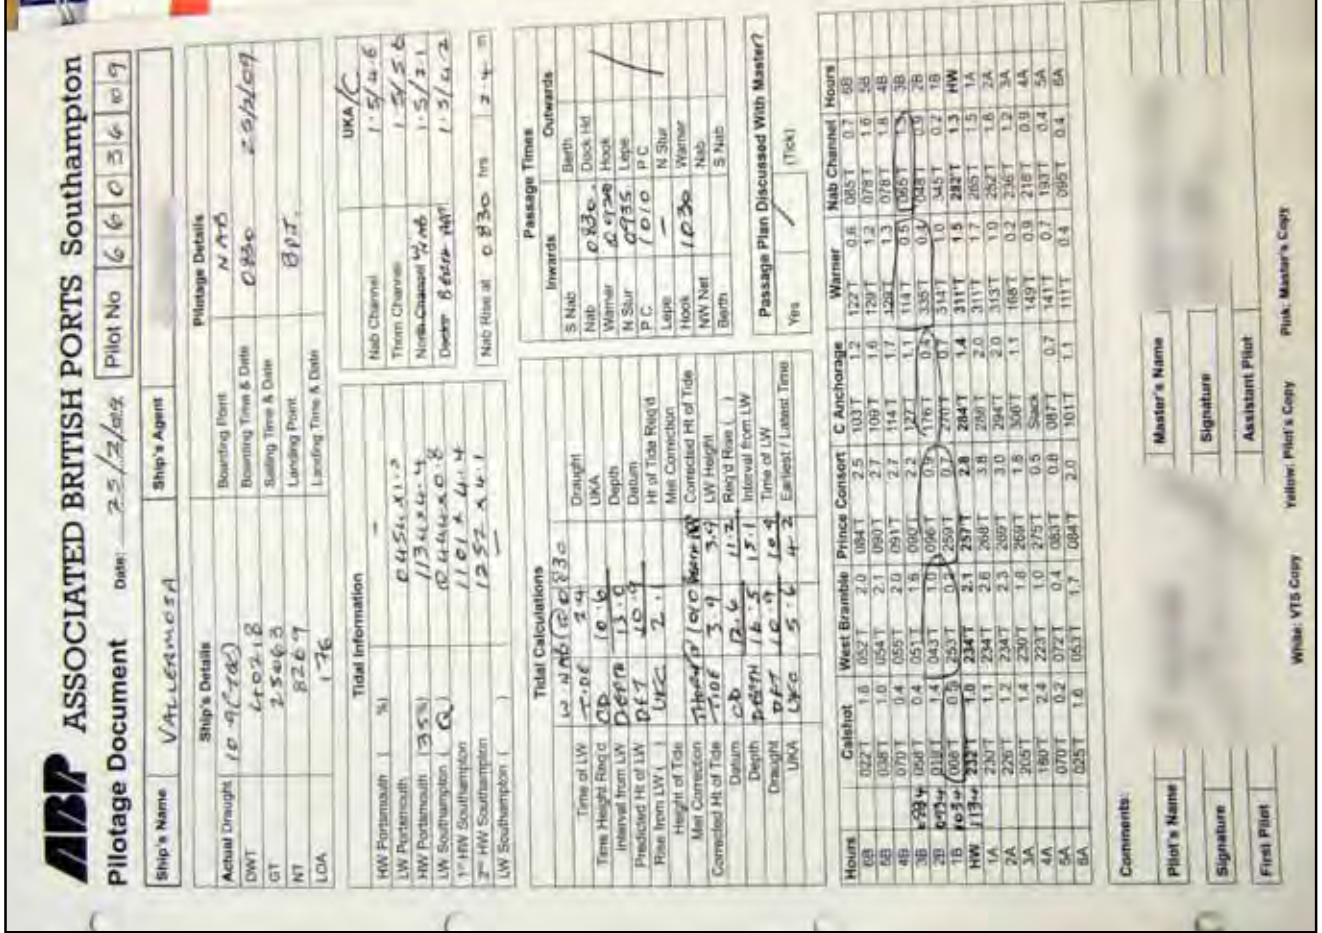 ABP ASSOCIATED BRITISH PORTS Southampton
Pilotage Document Date: 25/2/09 Pilot No 6 6 0 3 6 0 9
Ship's Name VALLERMOSA Ship's Agent
Ship's Details
Actual Draught 10.9 (
DWT 40218
GT 25063
NT 8269
LOA 176
Pilotage Details
Boarding Point NAB
Boarding Time & Date 0830 25/2/09
Sailing Time & Date
Landing Point BPT.
Landing Time & Date
Tidal Information
HW Portsmouth ( %) —
LW Portsmouth 0454 x 1.2
HW Portsmouth (35%) 1134 x 4.4
LW Southampton (Q) 0444 x 0.8
1st HW Southampton 1101 x 4.4
2nd HW Southampton 1257 x 4.1
LW Southampton ( ) —
UKA/C
Nab Channel 1.5/4.6
Thorn Channel 1.5/5.6
North Channel W/NAB 1.5/2.1
Docks BERTH 1.5/4.2
Nab Rise at 0830 hrs 2.4 m
Tidal Calculations
W. NAB @ 0830
Time of LW TIDE 2.4 Draught
Time Height Req'd CD 10.6 UKA
Interval from LW DEPTH 13.0 Depth
Predicted Ht of LW DFT 10.9 Datum
Rise from LW ( UKC 2.1 Ht of Tide Req'd
Height of Tide Met Correction
Met Correction THORN @ 1010 BERTH Corrected Ht of Tide
Corrected Ht of Tide TIDE 3.9 3.9 LW Height
Datum CD 12.6 11.2 Req'd Rise ( )
Depth DEPTH 16.5 15.1 Interval from LW
Draught DFT 10.9 10.9 Time of LW
UKA UKC 5.6 4.2 Earliest / Latest Time
Passage Times
Inwards Outwards
S Nab Berth
Nab 0830. Dock Hd
Warner 0920 Hook
N Stur 0935. Lepe
P C 1010 P C
Lepe — N Stur
Hook 1030 Warner
NW Net Nab
Berth S Nab
Passage Plan Discussed With Master?
Yes / (Tick)
Hours Calshot West Bramble Prince Consort C Anchorage Warner Nab Channel Hours
6B 022'T 1.6 052'T 2.0 084'T 2.5 103'T 1.2 122'T 0.6 065'T 0.7 6B
5B 038'T 1.0 054'T 2.1 090'T 2.7 109'T 1.6 129'T 1.2 078'T 1.6 5B
4B 070'T 0.4 055'T 2.0 091'T 2.7 114'T 1.7 128'T 1.3 078'T 1.8 4B
3B 0834 058'T 0.4 051'T 1.6 090'T 2.2 127'T 1.1 114'T 0.5 065'T 1.3 3B
2B 0934 018'T 1.4 043'T 1.0 096'T 0.9 176'T 0.4 335'T 0.4 048'T 0.9 2B
1B 1034 008'T 0.9 253'T 0.2 259'T 0.7 270'T 0.7 314'T 1.0 345'T 0.2 1B
HW 1134 232'T 1.0 234'T 2.1 257'T 2.8 284'T 1.4 311'T 1.5 282'T 1.3 HW
1A 230'T 1.1 234'T 2.6 268'T 3.8 288'T 2.0 311'T 1.7 265'T 1.5 1A
2A 226'T 1.2 234'T 2.3 269'T 3.0 294'T 2.0 313'T 1.0 252'T 1.6 2A
3A 205'T 1.4 230'T 1.8 269'T 1.6 306'T 1.1 168'T 0.2 236'T 1.2 3A
4A 180'T 2.4 223'T 1.0 275'T 0.5 Slack 149'T 0.9 218'T 0.9 4A
5A 070'T 0.2 072'T 0.4 083'T 0.8 087'T 0.7 141'T 0.7 193'T 0.4 5A
6A 025'T 1.6 053'T 1.7 084'T 2.0 101'T 1.1 111'T 0.4 095'T 0.4 6A
Comments:
Pilot's Name Master's Name
Signature Signature
First Pilot Assistant Pilot
White: VTS Copy Yellow: Pilot's Copy Pink: Master's Copy